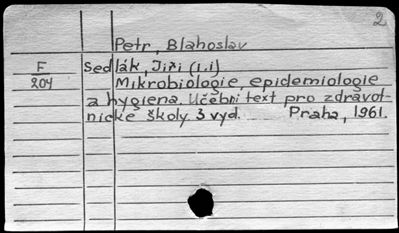 2
Petr, Blahoslav
F Sedlák, Jiří (1.i)
204 Mikrobiologie, epidemiologie
a hygiena. Učební text pro zdravot-
nické školy. 3 vyd. Praha, 1961.